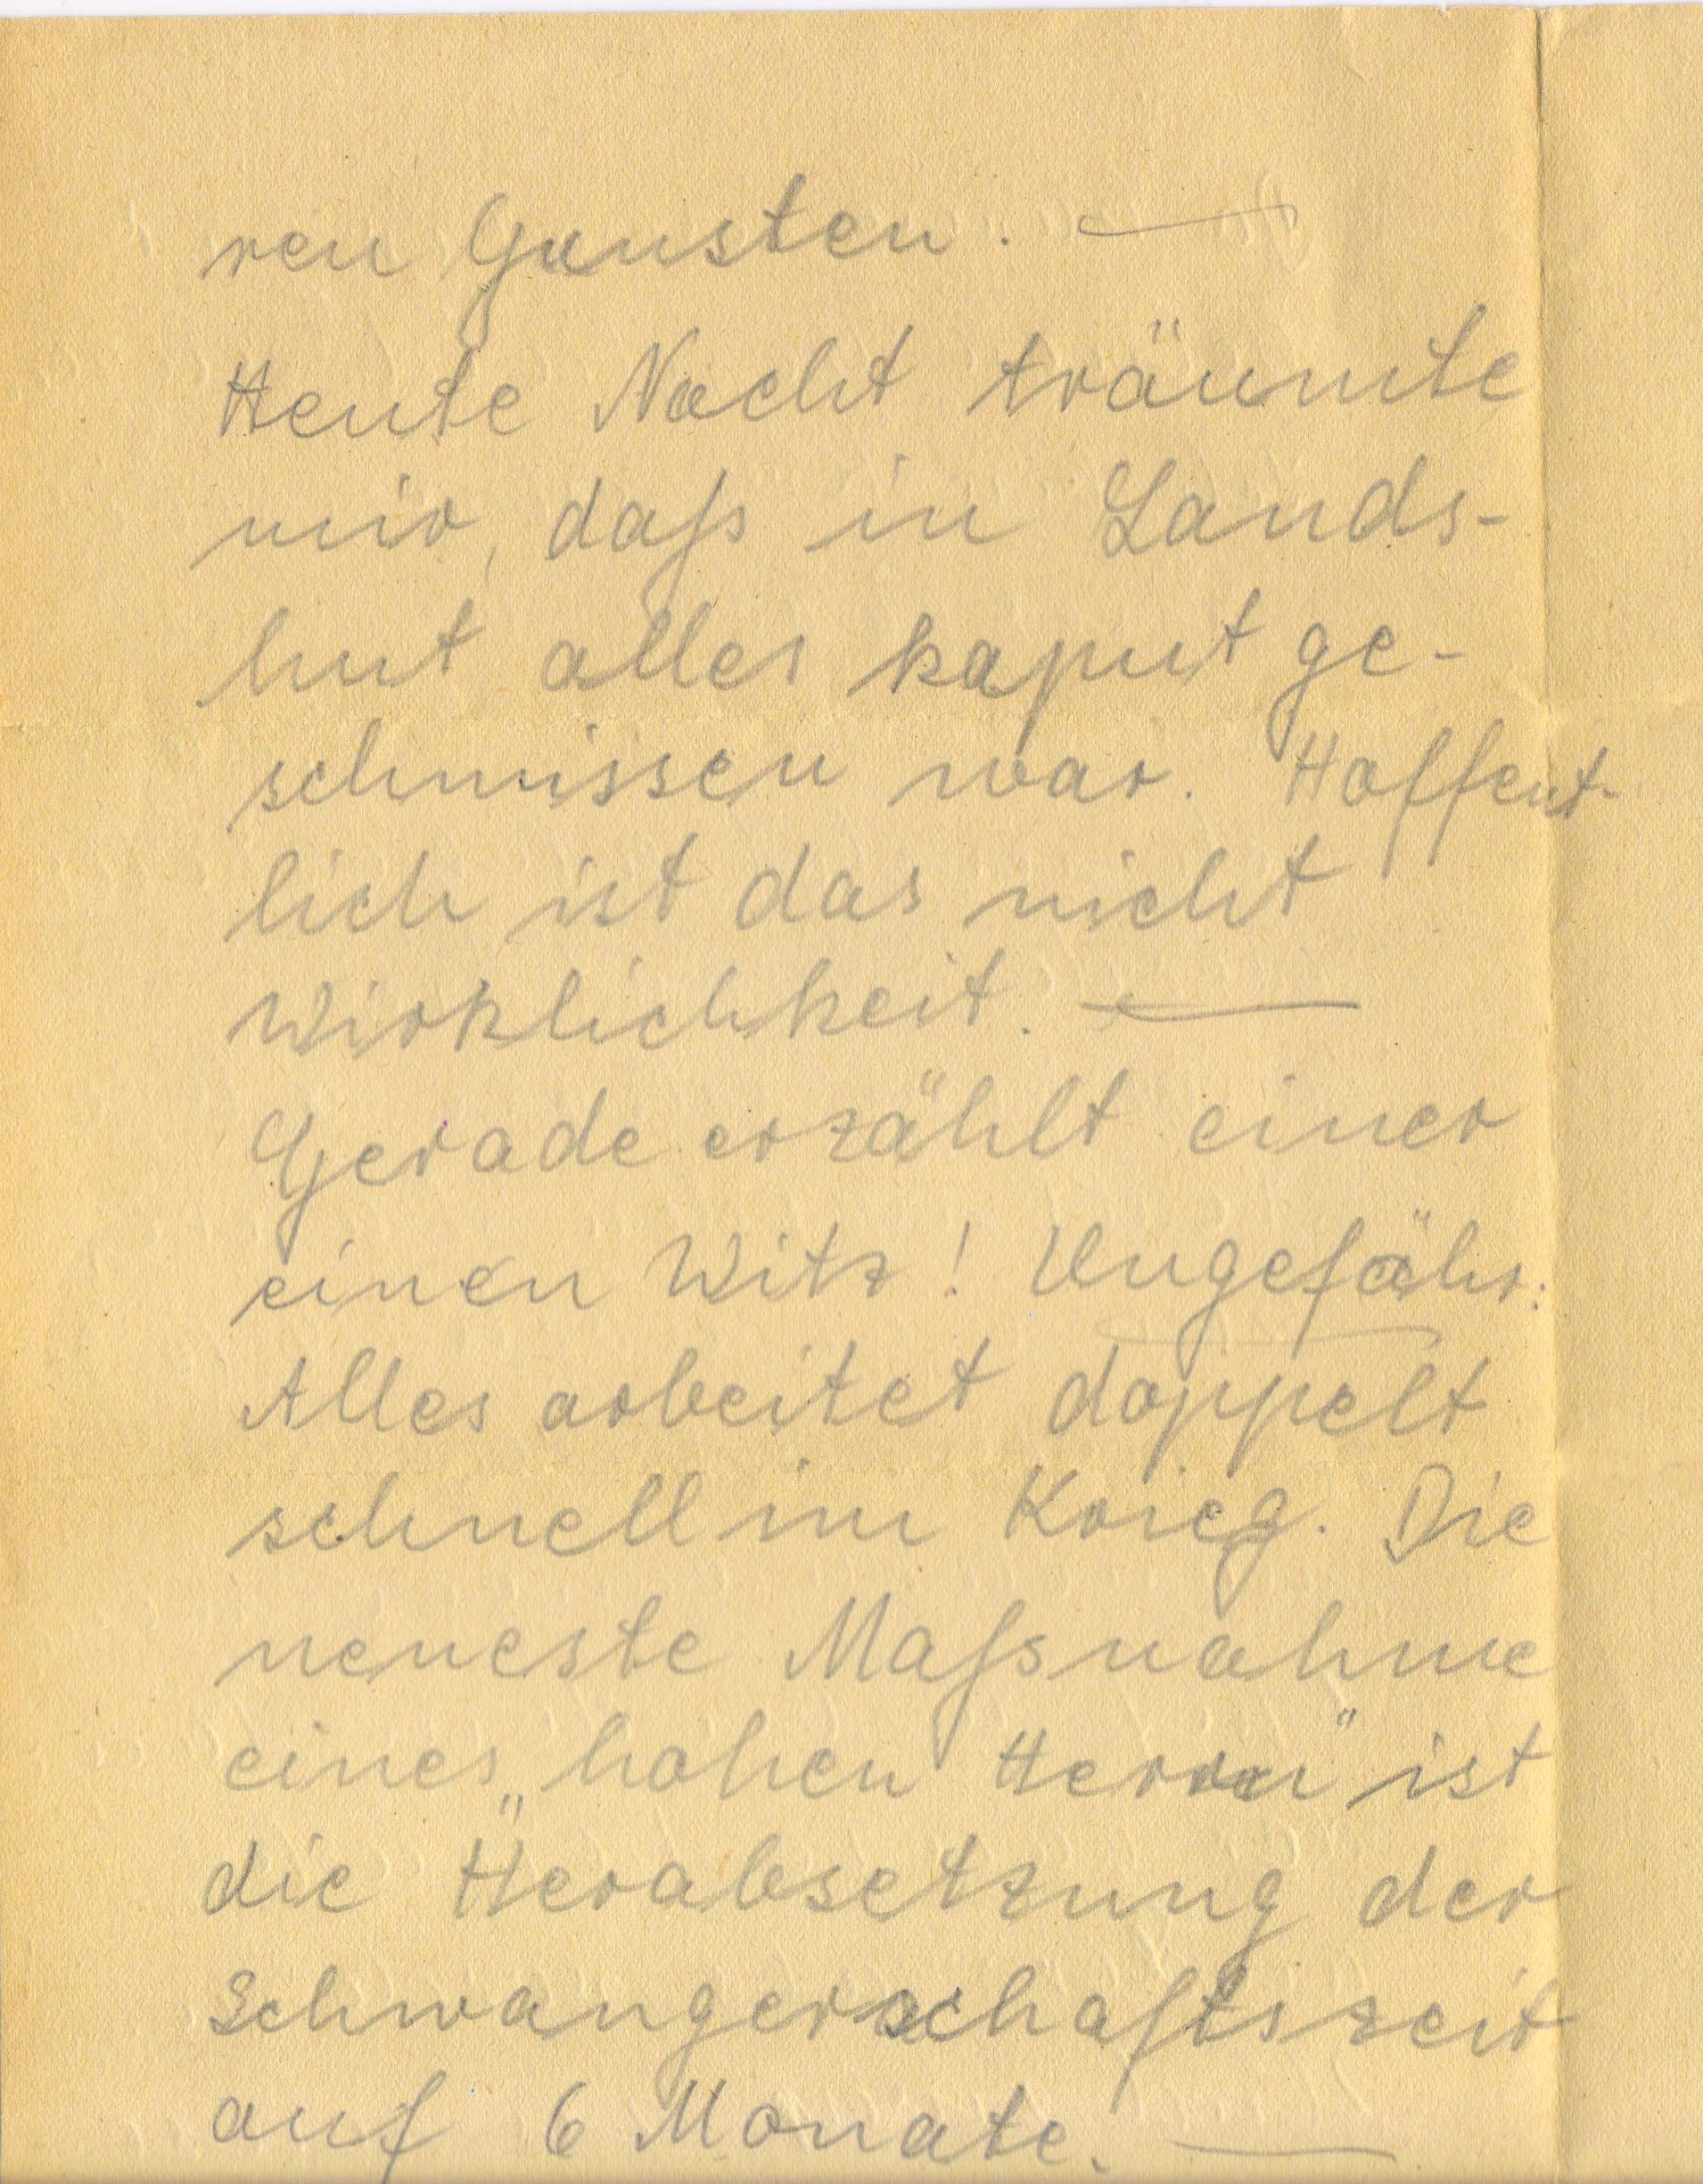 ren Gunsten. —
Heute Nacht träumte
mir, daß in Lands-
hut alles kaput ge-
schmissen war. Hoffent-
lich ist das nicht
Wirklichkeit. —
Gerade erzählt einer
einen Witz! Ungefähr:
Alles arbeitet doppelt
schnell im Krieg. Die
neueste Maßnahme
eines „hohen Herrn" ist
die Herabsetzung der
Schwangerschaftszeit
auf 6 Monate. —